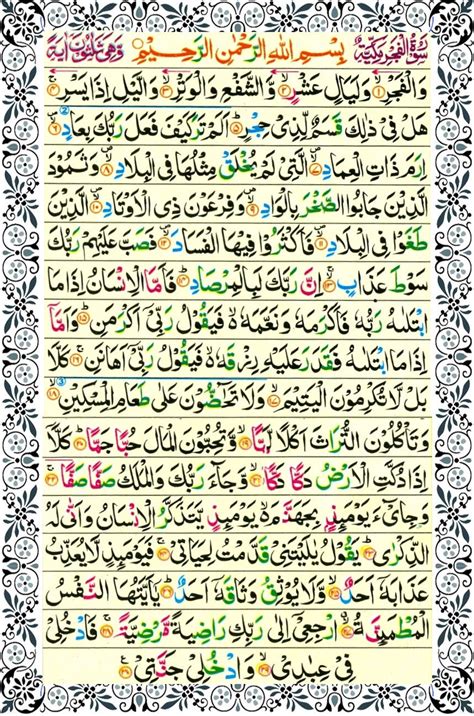 سُوْرَةُ الْفَجْرِ مَكِّيَّةٌ بِسْمِ اللهِ الرَّحْمٰنِ الرَّحِيْمِ وَّهِيَ ثَلٰثُوْنَ اٰيَةً
وَالْفَجْرِ ۙ﴿۱﴾ وَلَيَالٍ عَشْرٍ ۙ﴿۲﴾ وَّالشَّفْعِ وَالْوَتْرِ ۙ﴿۳﴾ وَالَّيْلِ اِذَا يَسْرِ ۚ﴿۴﴾
هَلْ فِيْ ذٰلِكَ قَسَمٌ لِّذِيْ حِجْرٍ ؕ﴿۵﴾ اَلَمْ تَرَ كَيْفَ فَعَلَ رَبُّكَ بِعَادٍ ۪ۙ﴿۶﴾
اِرَمَ ذَاتِ الْعِمَادِ ۪ۙ﴿۷﴾ الَّتِيْ لَمْ يُخْلَقْ مِثْلُهَا فِي الْبِلَادِ ۪ۙ﴿۸﴾ وَثَمُوْدَ
الَّذِيْنَ جَابُوا الصَّخْرَ بِالْوَادِ ۪ۙ﴿۹﴾ وَفِرْعَوْنَ ذِي الْاَوْتَادِ ۪ۙ﴿۱۰﴾ الَّذِيْنَ
طَغَوْا فِي الْبِلَادِ ۪ۙ﴿۱۱﴾ فَاَكْثَرُوْا فِيْهَا الْفَسَادَ ۪ۙ﴿۱۲﴾ فَصَبَّ عَلَيْهِمْ رَبُّكَ
سَوْطَ عَذَابٍ ۚۙ﴿۱۳﴾ اِنَّ رَبَّكَ لَبِالْمِرْصَادِ ؕ﴿۱۴﴾ فَاَمَّا الْاِنْسَانُ اِذَا مَا
ابْتَلٰىهُ رَبُّهٗ فَاَكْرَمَهٗ وَنَعَّمَهٗ ۙ۬ فَيَقُوْلُ رَبِّيْ اَكْرَمَنِ ؕ﴿۱۵﴾ وَاَمَّا
اِذَا مَا ابْتَلٰىهُ فَقَدَرَ عَلَيْهِ رِزْقَهٗ ۙ۬ فَيَقُوْلُ رَبِّيْ اَهَانَنِ ۚ﴿۱۶﴾ كَلَّا
بَلْ لَّا تُكْرِمُوْنَ الْيَتِيْمَ ۙ﴿۱۷﴾ وَلَا تَحٰٓضُّوْنَ عَلٰى طَعَامِ الْمِسْكِيْنِ ۙ﴿۱۸﴾
وَتَاْكُلُوْنَ التُّرَاثَ اَكْلًا لَّمًّا ۙ﴿۱۹﴾ وَّتُحِبُّوْنَ الْمَالَ حُبًّا جَمًّا ؕ﴿۲۰﴾ كَلَّاۤ
اِذَا دُكَّتِ الْاَرْضُ دَكًّا دَكًّا ۙ﴿۲۱﴾ وَّجَآءَ رَبُّكَ وَالْمَلَكُ صَفًّا صَفًّا ۚ﴿۲۲﴾
وَجِايْٓءَ يَوْمَئِذٍۭ بِجَهَنَّمَ ۙ۬ يَوْمَئِذٍ يَّتَذَكَّرُ الْاِنْسَانُ وَاَنّٰى لَهُ
الذِّكْرٰى ؕ﴿۲۳﴾ يَقُوْلُ يٰلَيْتَنِيْ قَدَّمْتُ لِحَيَاتِيْ ۚ﴿۲۴﴾ فَيَوْمَئِذٍ لَّا يُعَذِّبُ
عَذَابَهٗۤ اَحَدٌ ۙ﴿۲۵﴾ وَّلَا يُوْثِقُ وَثَاقَهٗۤ اَحَدٌ ؕ﴿۲۶﴾ يٰۤاَيَّتُهَا النَّفْسُ
الْمُطْمَئِنَّةُ ۖۗ﴿۲۷﴾ ارْجِعِيْۤ اِلٰى رَبِّكِ رَاضِيَةً مَّرْضِيَّةً ۚ﴿۲۸﴾ فَادْخُلِيْ
فِيْ عِبٰدِيْ ۙ﴿۲۹﴾ وَادْخُلِيْ جَنَّتِيْ ﴿۳۰﴾